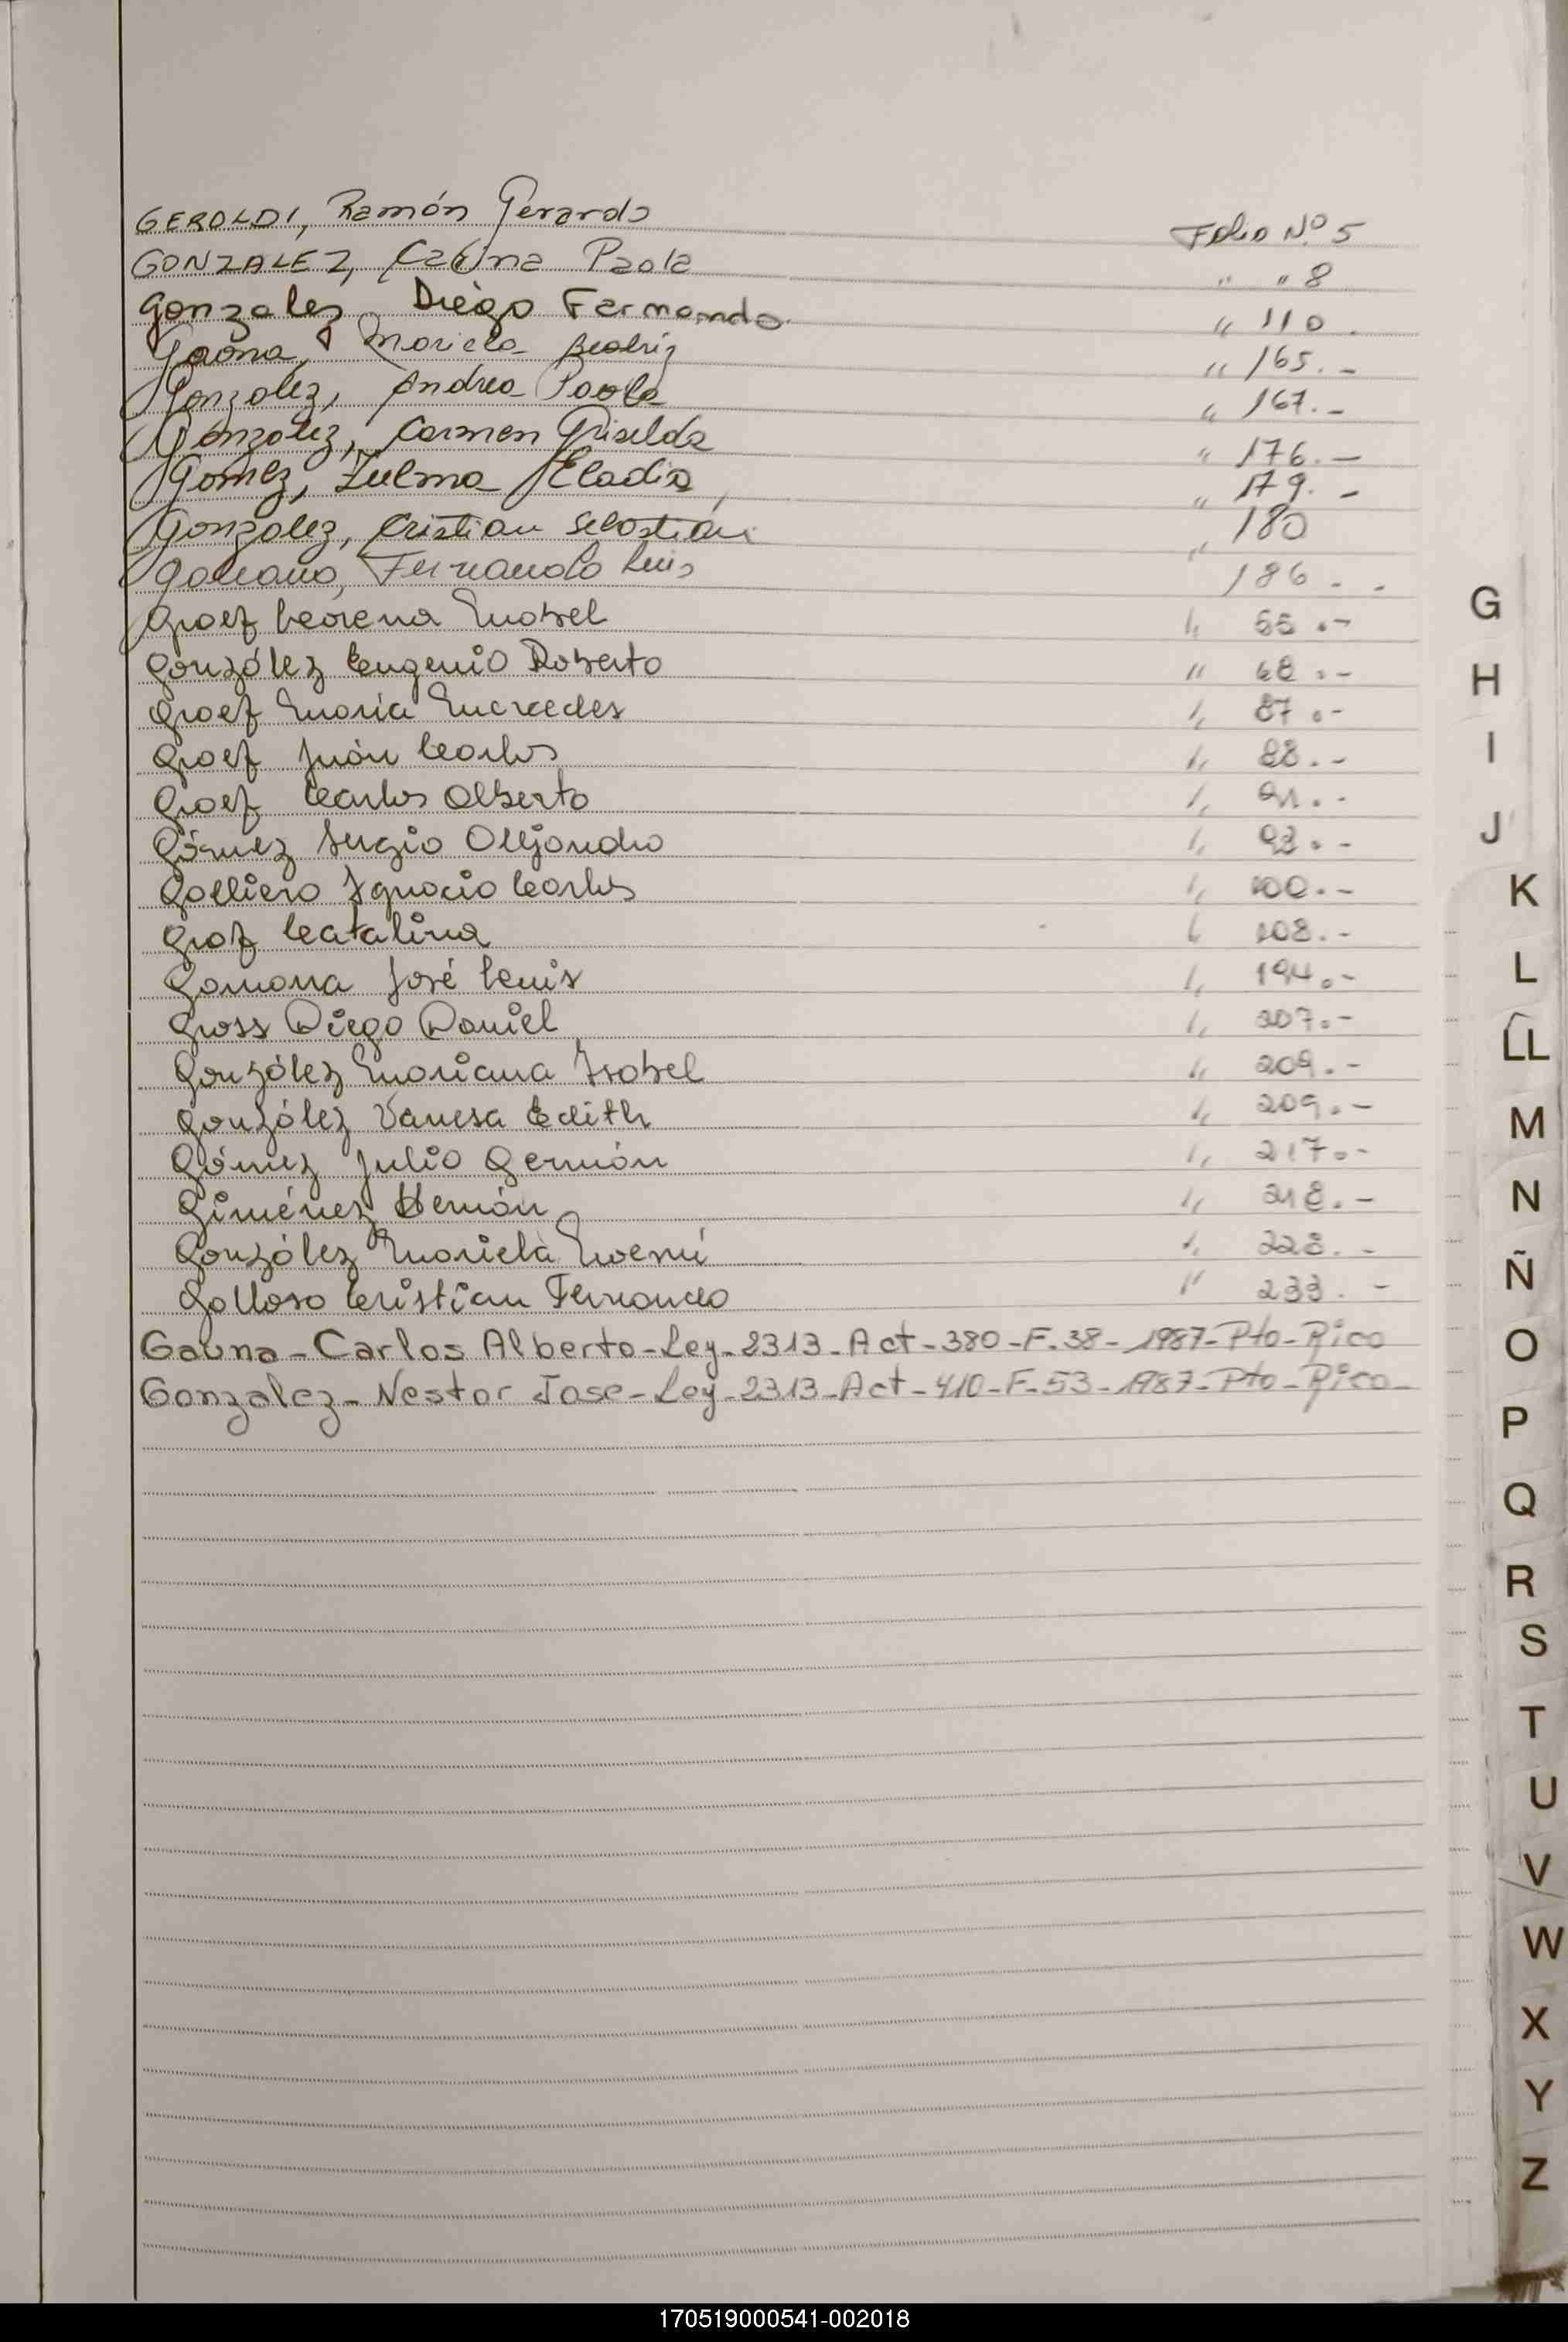 GEROLDI, Ramón Gerardo Folio Nº 5
GONZALEZ, Carina Paola " " 8
Gonzalez, Diego Fernando " 110.
Gaona, Mariela Beatriz " 165.-
Gonzalez, Andrea Paola " 167.-
Gonzalez, Carmen Griselda " 176.-
Gomez, Zulma Eladia " 179.-
Gonzalez, Cristian Sebastián " 180
Galeano, Fernando Luis 186.-
Graef Lorena Mabel " 55.-
González Eugenio Roberto " 68.-
Graef María Mercedes " 87.-
Graef Juán Carlos " 88.-
Graef Carlos Alberto " 91.-
Gómez Sergio Alejandro " 93.-
Galliero Ignacio Carlos " 100.-
Graf Catalina " 108.-
Gamona José Luis " 194.-
Gross Diego Daniel " 207.-
González Mariana Isabel " 209.-
González Vanesa Edith " 209.-
Gómez Julio Germán " 217.-
Giménez Hernán " 218.-
González Mariela Noemí " 228.-
Galloso Cristian Fernando " 233.-
Gauna-Carlos Alberto-Ley-2313-Act-380-F.38-1987-Pto-Rico
Gonzalez-Nestor Jose-Ley-2313-Act-410-F-53-1987-Pto-Rico-
G
H
I
J
K
L
LL
M
N
Ñ
O
P
Q
R
S
T
U
V
W
X
Y
Z
170519000541-002018